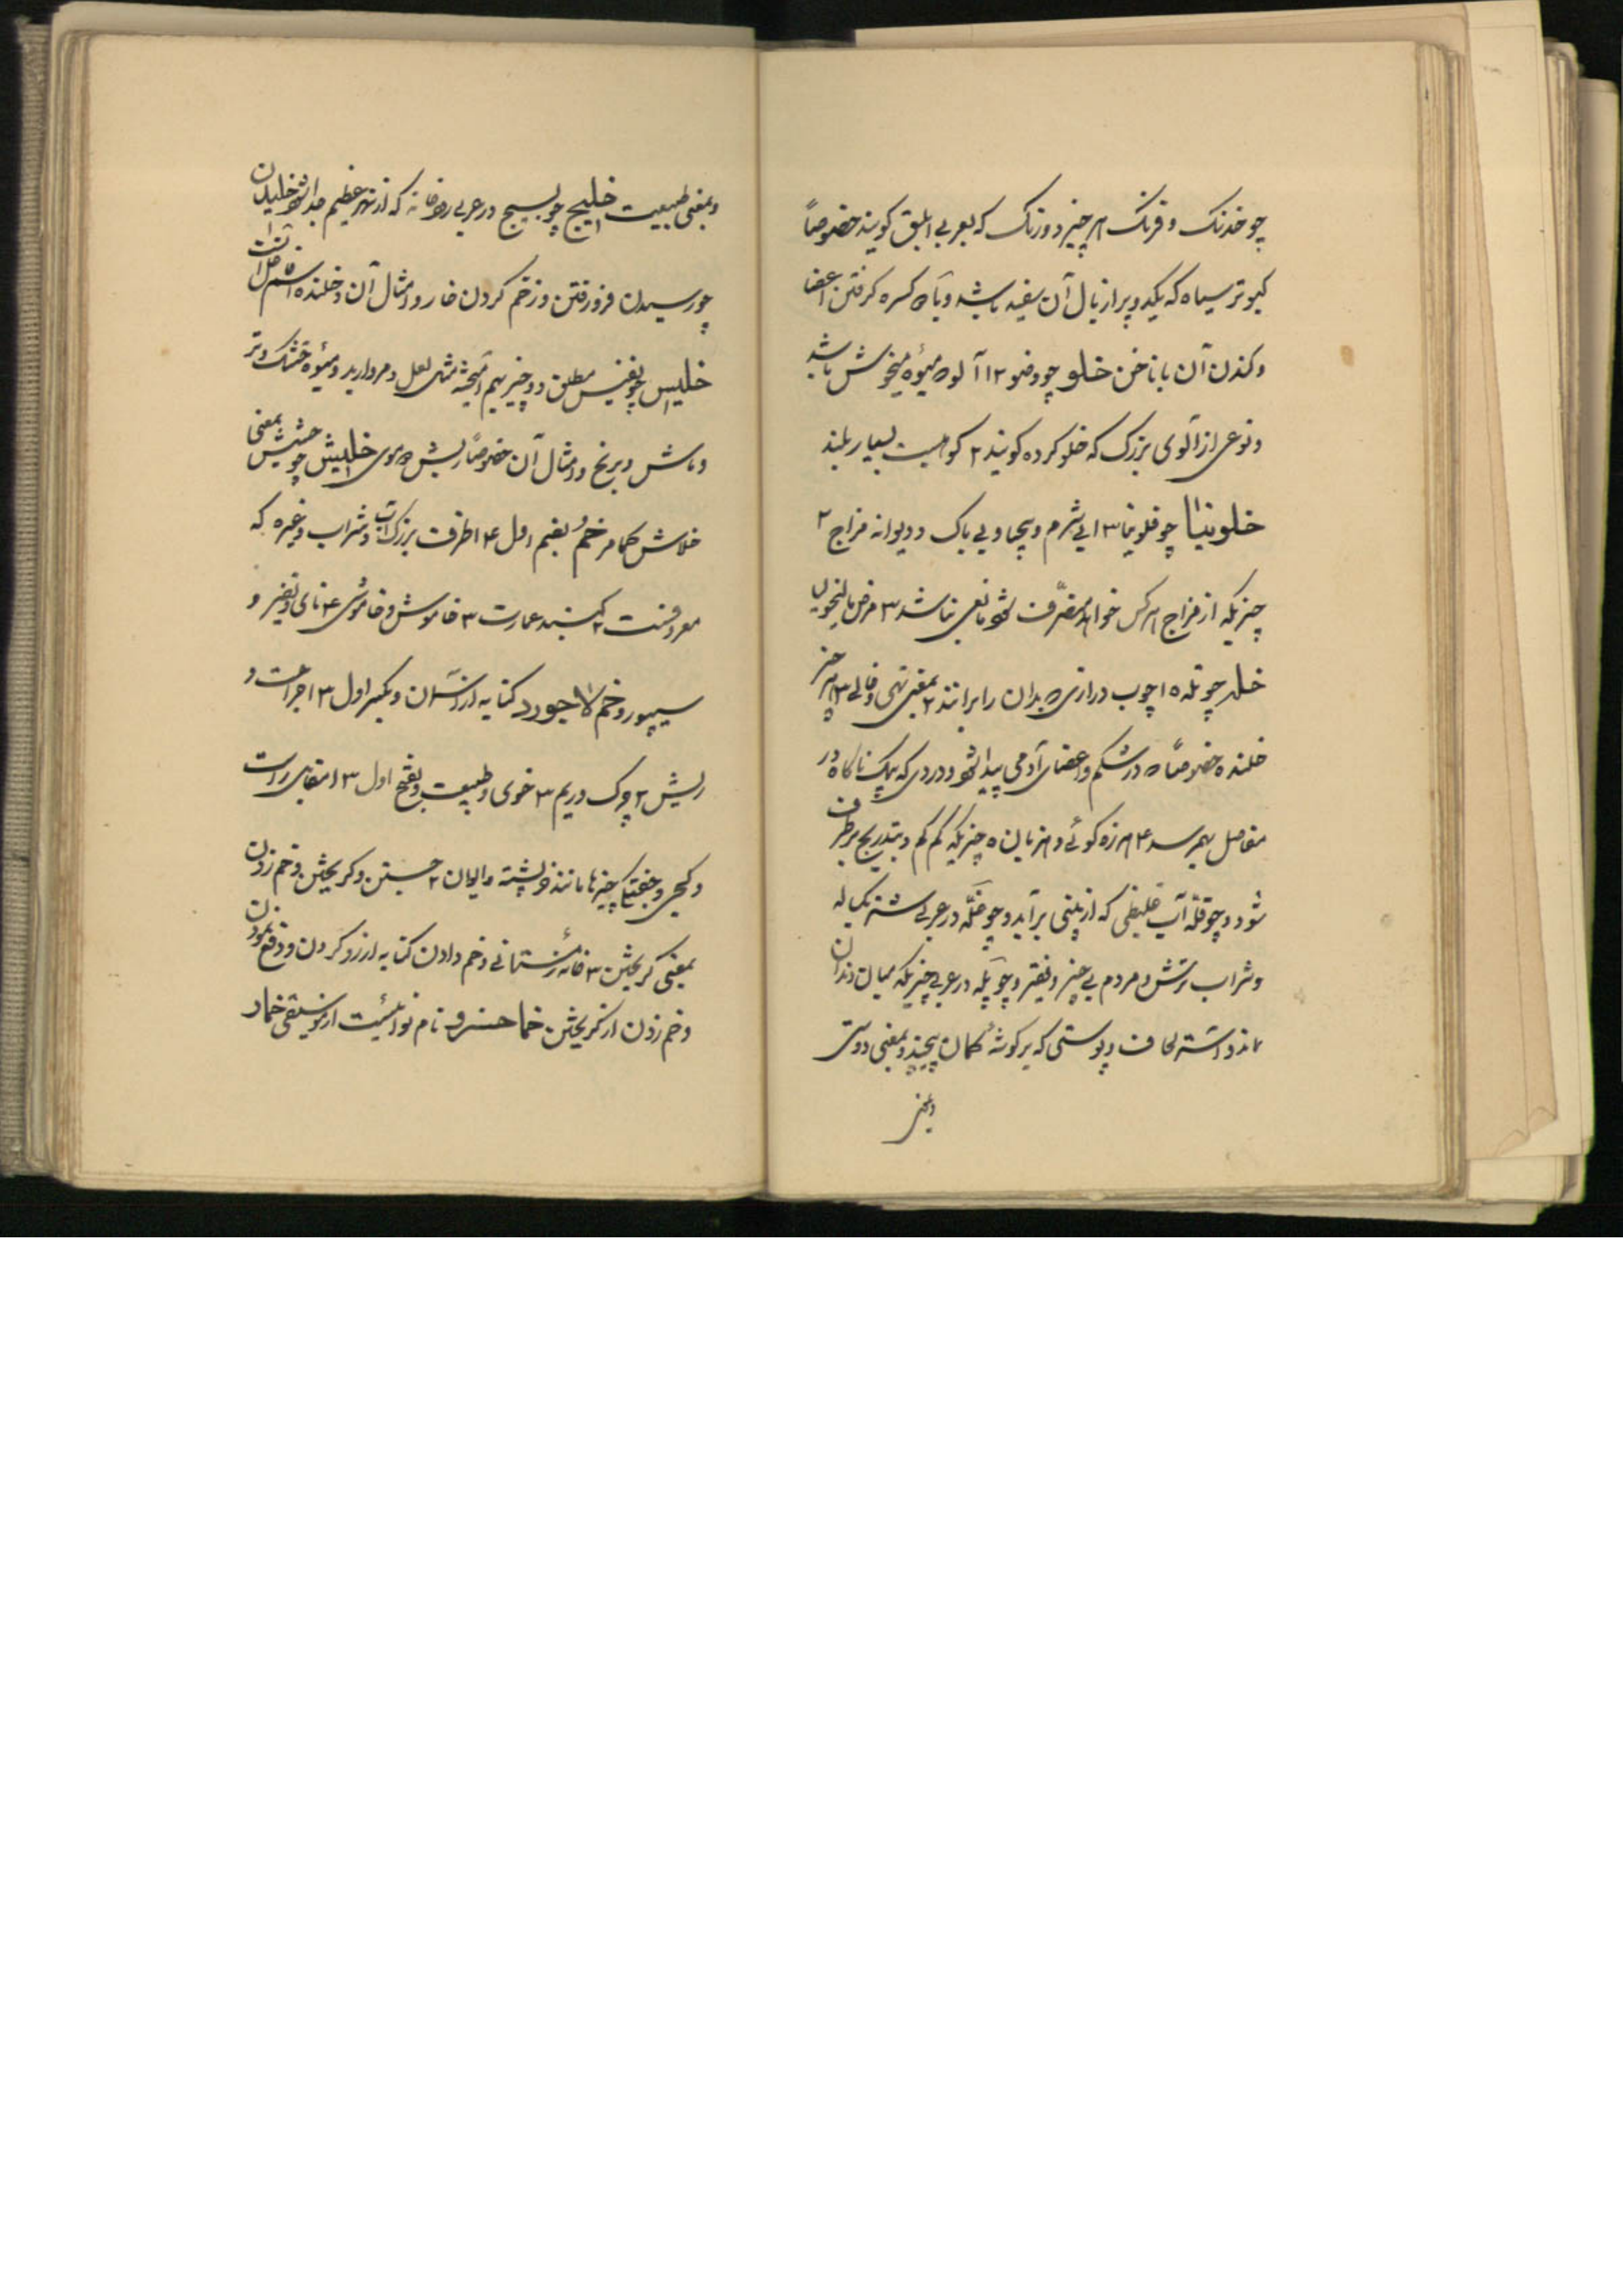 چو خدنک و فرنک هر چیز دو رنک که بعربی ابلق کویند خصوصاً
کبوتر سیاه که یکدو پر از بال آن سفید باشد و بآ کسره کرفتن اعضا
و کندن آن با ناخن خلو چو وضو ۱۲ آلو میوه میخوش باشد
و نوعی از آلوی بزرک که خلو کرده کویند ۲ کوهیست بسیار بلند
خلوینا چو فلونیا ۳ ا بی شرم و بیحیا و بی باک و دیوانه مزاج ۲
چیزیکه از مزاج هر کس خواهد متصرف شود مانعی نباشد ۳ مرض مالیخولیا
خله چو تله ۵ ا چوب درازی بدان را برانند ۲ بمعنی تهی و خالی ۳ هر چیز
خلنده خصوصاً در شکم و اعضای آدمی پیدا شود و دردی که یک ناکاه در
مفاصل بهمرسد ۴ هرزه کوئی و هزیان ۵ چیزیکه کم کم و بتدریج برطرف
شود و چو قلّه آب غلیظی که از بینی برآید و چو غلّه در عربی شتر یکساله
و شراب ترش و مردم بی چیز و فقیر و چو پله در عربی چیزیکه میان دندان
ماند و استر لحاف و پوستی که بر کوشهٔ کمان پیچند و بمعنی دوستی
و بمعنی
و بمعنی طبیعت خلیج چو بسیج در عربی رودخانه که از نهر عظیم جدا شود خلیدن
چو رسیدن فرو رفتن و زخم کردن خار و امثال آن و خلنده اسم فاعل آنست
خلیس چو نفیس مطلق دو چیز بهم آمیخته مثل لعل و مروارید و میوه خشک و تر
و ماش و برنج و امثال آن خصوصاً ریش موی خلیش چو حشیش بمعنی
خلاش کما مر خم بضم اول ۴ ا ظرف بزرک آب و شراب و غیره که
معروفست ۲ کنبد عمارت ۳ خاموش و خاموشی ۴ نای و نفیر و
سیپور و خم لاجورد کنایه از آسمان و بکسر اول ۳ ا جراحت و
ریش ۲ چرک و ریم ۳ خوی و طبیعت و بفتح اول ۳ ا مقابل راست
و کجی و خفتیا چیزها مانند خرپشته و ایوان ۲ جستن و کریختن و خم زدن
بمعنی کریختن ۳ خانهٔ زمستانی و خم دادن کنایه از رد کردن و دفع نمودن
و خم زدن از کریختن خما خسرو نام نوائیست از موسیقی خمار